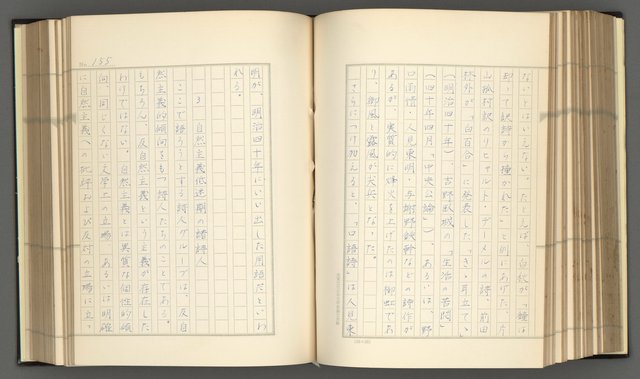 ないとはいえない。たとえば、白秋が「鐘は
却って訳詩から獲かれた」例にあげた、片
山敏村訳のリヒァルト・デーメルの詩、前田
林外が「白百合」に発表した「き耳立てゝ」
(明治四十年)、吉野臥城の「生活の苦悶」
(四十年四月「中央公論」)、あるいは、野
口雨情・人見東明・与謝野鉄幹などの詩作が
あるが、実質的に烽火を上げたのは御虹であ
り、御風と露風が大兵となった。
さらにつけ加えると、「口語詩」は人見東
No. 155
明が、明治四十年にいい出した用語だといわ
れる。
3　自然主義低迷期の諸詩人
ここで語ろうとする詩人グループは、反自
然主義的傾向をもつ詩人たちのことである。
もちろん、反自然主義という主義が存在した
わけではない。自然主義とは異質な個性的傾
向、同じくない文学上の立場、あるいは明確
に自然主義への批評および反対の立場に立っ